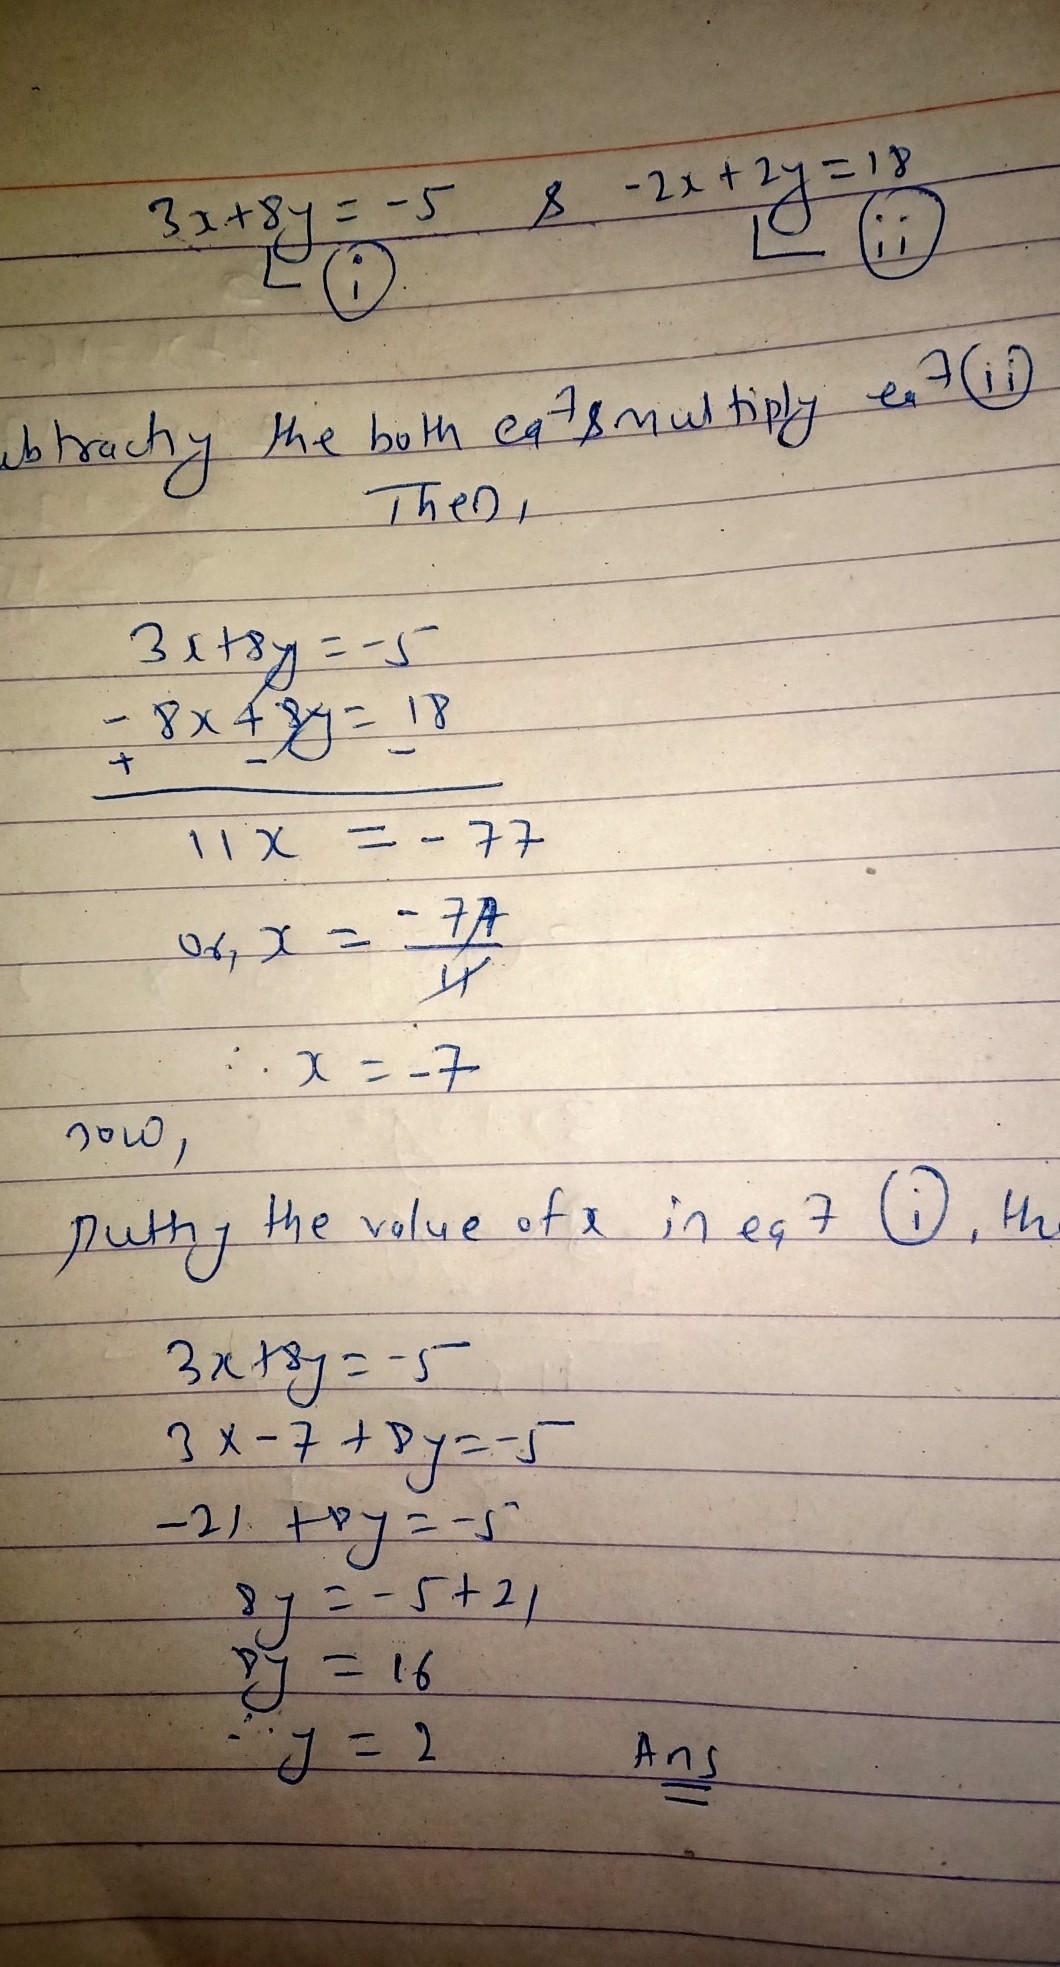 3x+8y=-5 & -2x+2y=18
(i) (ii)
ubtracty the both eq7 & multiply eq7 (ii)
Then,
3x+8y=-5
-8x+8y=18
+ - -
11x = -77
or, x = -77/11
∴ x = -7
now,
putty the value of x in eq7 (i), the
3x+8y=-5
3x-7+8y=-5
-21+8y=-5
8y=-5+21
8y=16
∴ y=2 Ans